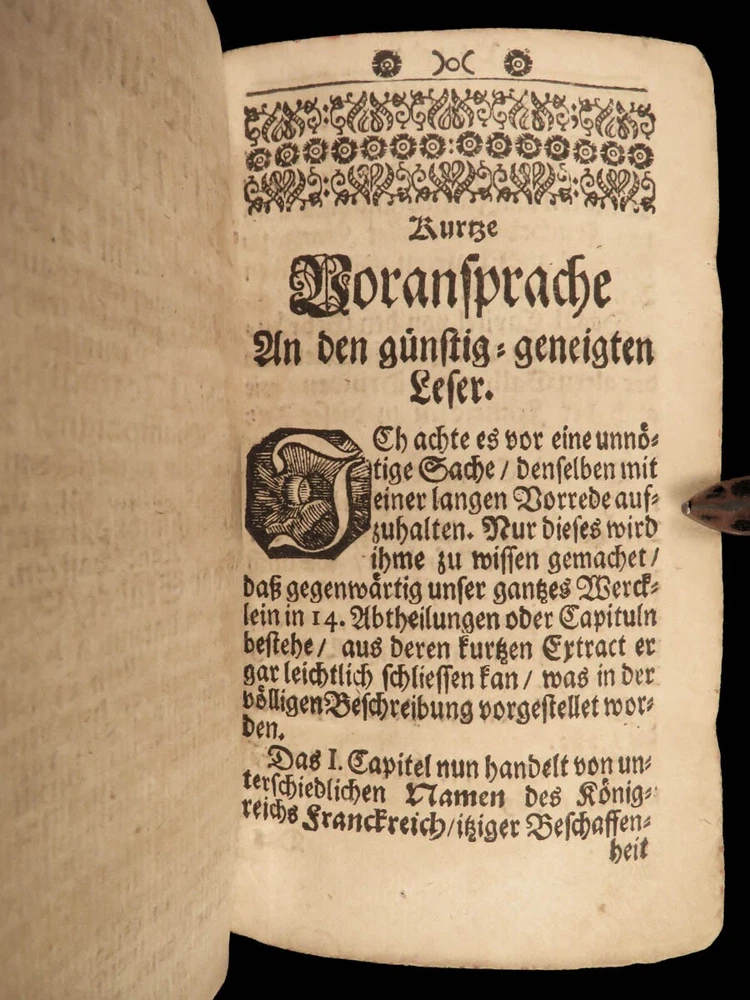 Kurtze
Voransprache
An den günstig-geneigten
Leser.
ICh achte es vor eine unnö-
tige Sache / denselben mit
einer langen Vorrede auf-
zuhalten. Nur dieses wird
ihme zu wissen gemachet /
daß gegenwärtig unser gantzes Werck-
lein in 14. Abtheilungen oder Capituln
bestehe / aus deren kurtzen Extract er
gar leichtlich schliessen kan / was in der
völligen Beschreibung vorgestellet wor-
den.
Das I. Capitel nun handelt von un-
terschiedlichen Namen des König-
reichs Franckreich / itziger Beschaffen-
heit